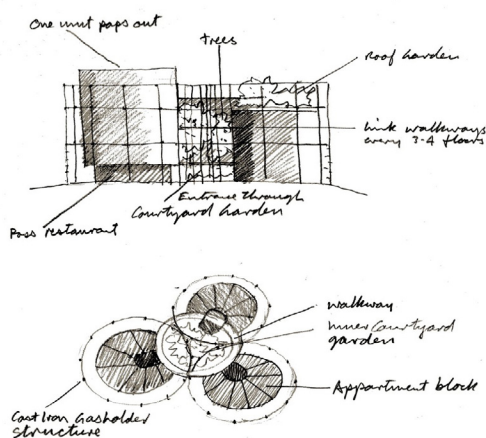 One unit pops out
trees
Roof Garden
Link walkways
every 3-4 floors
Entrance through
Courtyard Garden
Poss restaurant
walkway
Inner Courtyard
garden
Appartment block
Cast Iron Gasholder
Structure